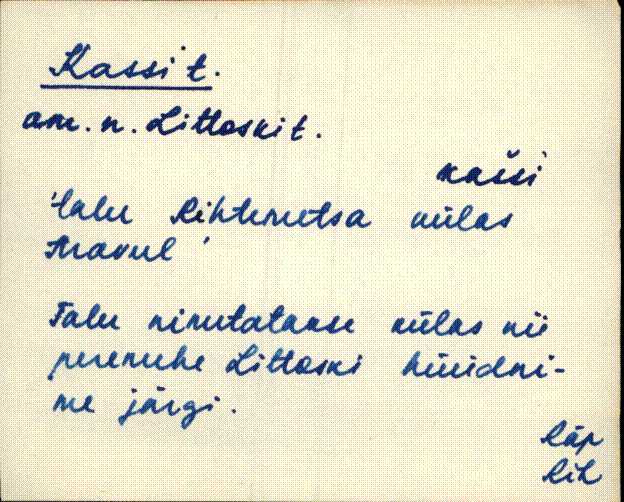 Kassi t.
am. n. Littoski t.
kašši
'talu Rihtemetsa külas
Aravul'
Talu nimetatakse külas nii
peremehe Littoski hüüdni-
me järgi.
Räp
Rih